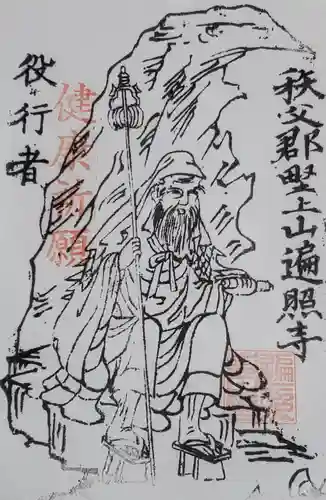 秩父郡野上山遍照寺
健康祈願
役行者